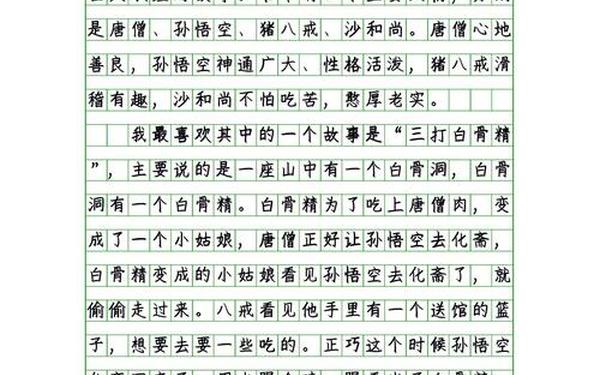 是唐僧、孙悟空、猪八戒、沙和尚。唐僧心地
善良，孙悟空神通广大、性格活泼，猪八戒滑
稽有趣，沙和尚不怕吃苦，憨厚老实。
我最喜欢其中的一个故事是“三打白骨精
”，主要说的是一座山中有一个白骨洞，白骨
洞有一个白骨精。白骨精为了吃上唐僧肉，变
成了一个小姑娘，唐僧正好让孙悟空去化斋，
白骨精变成的小姑娘看见孙悟空去化斋了，就
偷偷走过来。八戒看见他手里有一个送馆的篮
子，想要去要一些吃的。正巧这个时候孙悟空